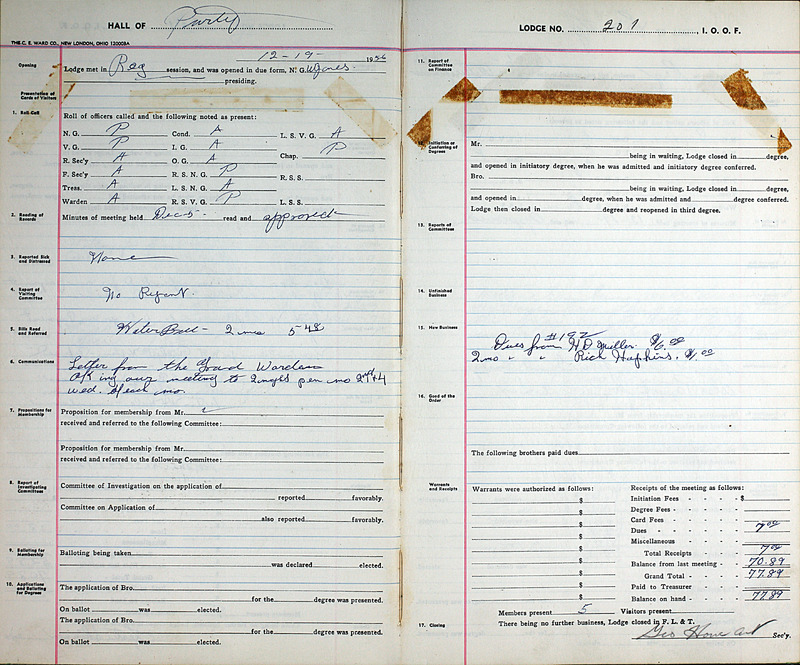 HALL OF Purity
THE C. E. WARD CO., NEW LONDON, OHIO 120008A
12-19- 1956
Opening
Lodge met in Reg session, and was opened in due form, N. G. Jones.
presiding.
Presentation of Cards of Visitors
1. Roll Call
Roll of officers called and the following noted as present:
N. G. P Cond. A L. S. V. G. A
V. G. P I. G. A Chap. P
R. Sec'y A O. G. A
F. Sec'y A R. S. N. G. P R. S. S.
Treas. A L. S. N. G. A
Warden A R. S. V. G. P L. S. S.
2. Reading of Records
Minutes of meeting held Dec-5- read and approved
3. Reported Sick and Distressed
None
4. Report of Visiting Committee
No Report.
5. Bills Read and Referred
Water Bill - 2 mo 5 48
6. Communications
Letter from the Grand Warden
OK ing our meeting to 2 nights per mo 2nd & 4
wed. of each mo.
7. Propositions for Membership
Proposition for membership from Mr.
received and referred to the following Committee:
Proposition for membership from Mr.
received and referred to the following Committee:
8. Report of Investigating Committees
Committee of Investigation on the application of
reported favorably.
Committee on Application of
also reported favorably.
9. Balloting for Membership
Balloting being taken
was declared elected.
10. Applications and Balloting for Degrees
The application of Bro.
for the degree was presented.
On ballot was elected.
The application of Bro.
for the degree was presented.
On ballot was elected.
LODGE NO. 201, I. O. O. F.
11. Report of Committee on Finance
12. Initiation or Conferring of Degrees
Mr.
being in waiting, Lodge closed in degree,
and opened in initiatory degree, when he was admitted and initiatory degree conferred.
Bro.
being in waiting, Lodge closed in degree,
and opened in degree, when he was admitted and degree conferred.
Lodge then closed in degree and reopened in third degree.
13. Reports of Committees
14. Unfinished Business
15. New Business
#192
Dues from H D Miller. $6.00
2 mo " " Rich Hopkins. $1.00
16. Good of the Order
The following brothers paid dues
Warrants and Receipts
Warrants were authorized as follows: Receipts of the meeting as follows:
$ Initiation Fees - - - - $
$ Degree Fees - - - - -
$ Card Fees - - - - -
$ Dues - - - - - 7.00
$ Miscellaneous - - - -
$ Total Receipts - - - 7.00
$ Balance from last meeting - 70.89
$ Grand Total - - - - 77.89
$ Paid to Treasurer - - -
$ Balance on hand - - - 77.89
Members present 5 Visitors present
17. Closing
There being no further business, Lodge closed in F. L. & T.
Geo Sec'y.